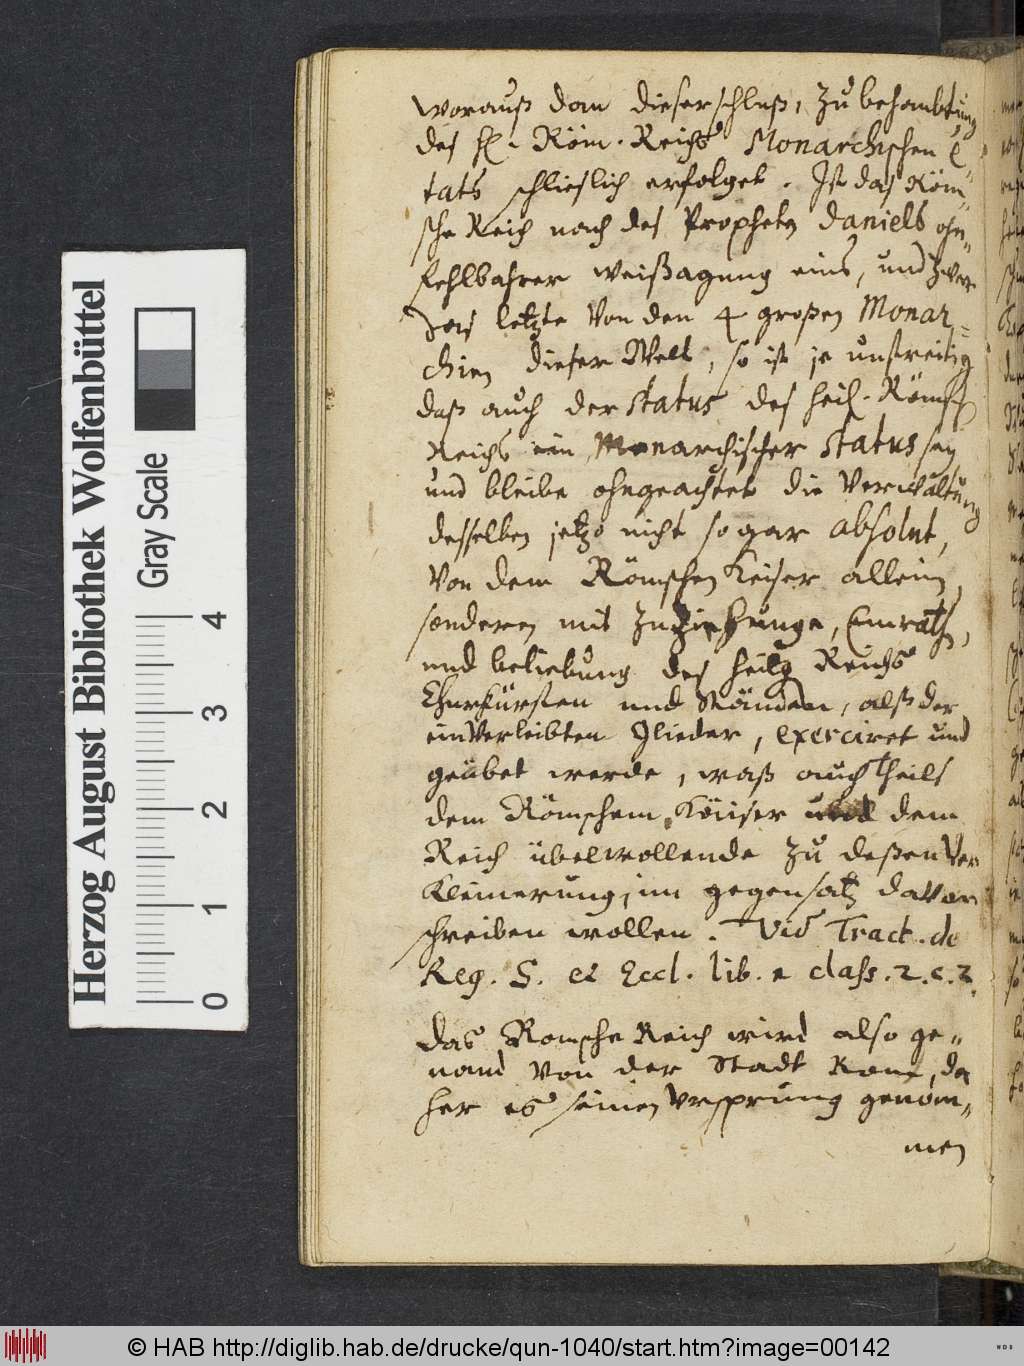 worauß dan dieser schluß, zu behaubtung
des H. Röm. Reichs Monarchischen S
tats schlieslich erfolget. Ist das Röm=
sche Reich nach des Propheten Daniels ohn=
fehlbahrer weissagung eins, und zwar
das letzte von den 4 großen Monar=
chien dieser Welt, so ist je unstreitig
daß auch der status des heil. Römsch
Reichs ein Monarchischer status sey
und bleibe ohngeachtet die Verwaltung
desselben jetzo nicht so gar absolut,
von dem Römschen Keiser allein,
sonderen mit Zuziehunge, Einrath,
und beliebung des heilg Reichs
Churfürsten und Ständen, alß der
einverleibten Glieder, exerciret und
geübet werde, waß auch theils
dem Römschem Käiser und dem
Reich übelwollende zu deßen Ver
kleinerung, im gegensatz davon
schreiben wollen. Vid Tract. de
Reg. S. et Eccl. lib. 1 class. 2. c. 2.
Das Romsche Reich wird also ge=
nand von der Stadt Rom, da
her es seinen Vrsprung genom=
men
Herzog August Bibliothek Wolfenbüttel
Gray Scale
0 1 2 3 4
© HAB http://diglib.hab.de/drucke/qun-1040/start.htm?image=00142